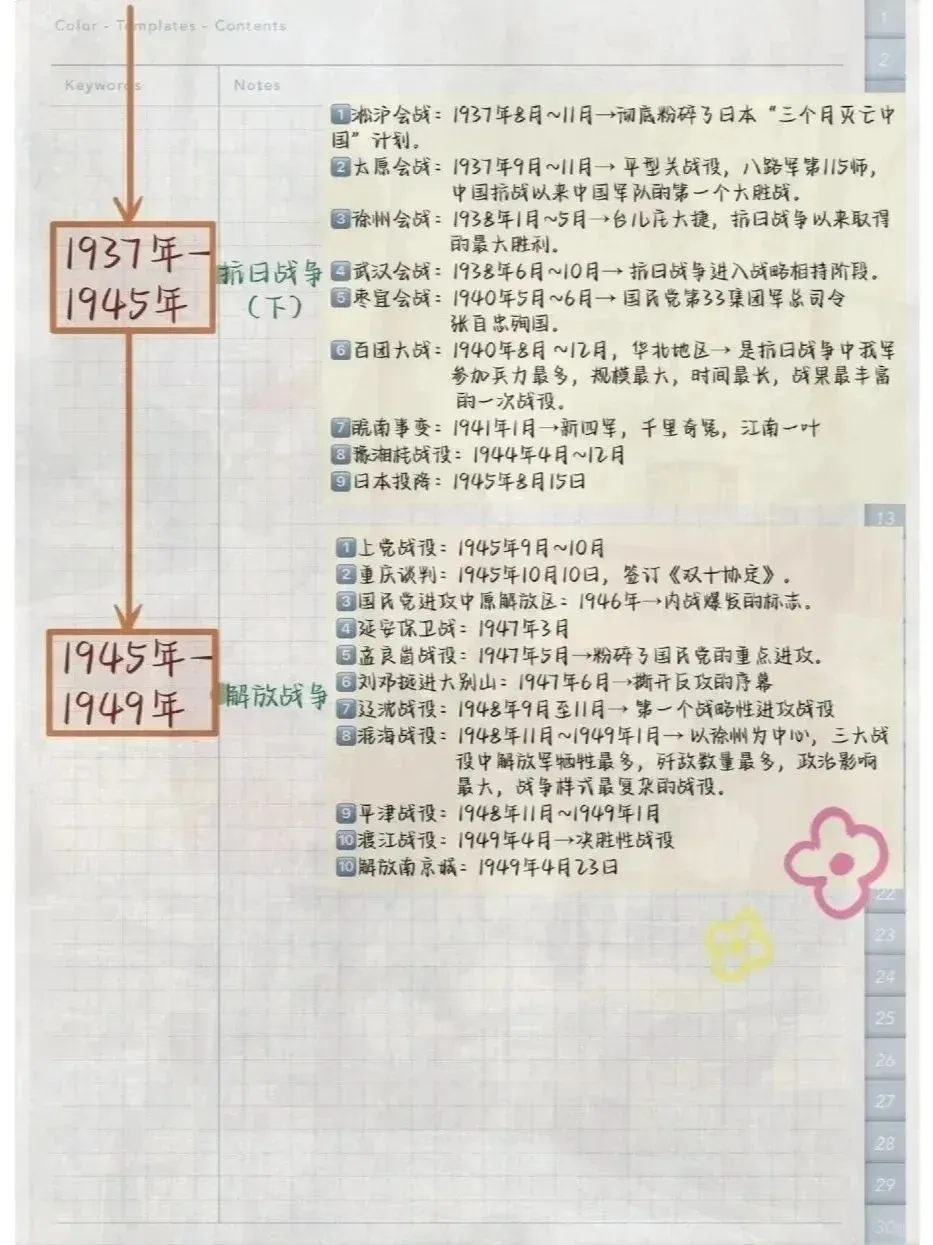 Color - Templates - Contents
1
2
Keywords
Notes
1淞沪会战：1937年8月~11月→彻底粉碎了日本“三个月灭亡中
国”计划。
2太原会战：1937年9月~11月→平型关战役，八路军第115师，
中国抗战以来中国军队的第一个大胜战。
3徐州会战：1938年1月~5月→台儿庄大捷，抗日战争以来取得
的最大胜利。
1937年—
1945年
抗日战争
（下）
4武汉会战：1938年6月~10月→抗日战争进入战略相持阶段。
5枣宜会战：1940年5月~6月→国民党第33集团军总司令
张自忠殉国。
6百团大战：1940年8月~12月，华北地区→是抗日战争中我军
参加兵力最多，规模最大，时间最长，战果最丰富
的一次战役。
7皖南事变：1941年1月→新四军，千里奇冤，江南一叶
8豫湘桂战役：1944年4月~12月
9日本投降：1945年8月15日
13
1上党战役：1945年9月~10月
2重庆谈判：1945年10月10日，签订《双十协定》。
3国民党进攻中原解放区：1946年→内战爆发的标志。
4延安保卫战：1947年3月
5孟良崮战役：1947年5月→粉碎了国民党的重点进攻。
6刘邓挺进大别山：1947年6月→撕开反攻的序幕
1945年—
1949年
解放战争
7辽沈战役：1948年9月至11月→第一个战略性进攻战役
8淮海战役：1948年11月~1949年1月→以徐州为中心，三大战
役中解放军牺牲最多，歼敌数量最多，政治影响
最大，战争样式最复杂的战役。
9平津战役：1948年11月~1949年1月
10渡江战役：1949年4月→决胜性战役
10解放南京城：1949年4月23日
22
23
24
25
26
27
28
29
30